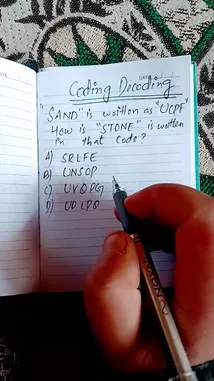 Coding Decoding
"SAND" is written as "UCPF"
How is "STONE" is written
in that code?
A) SRLFE
B) UNSOP
C) UVQPG
D) UDLPO